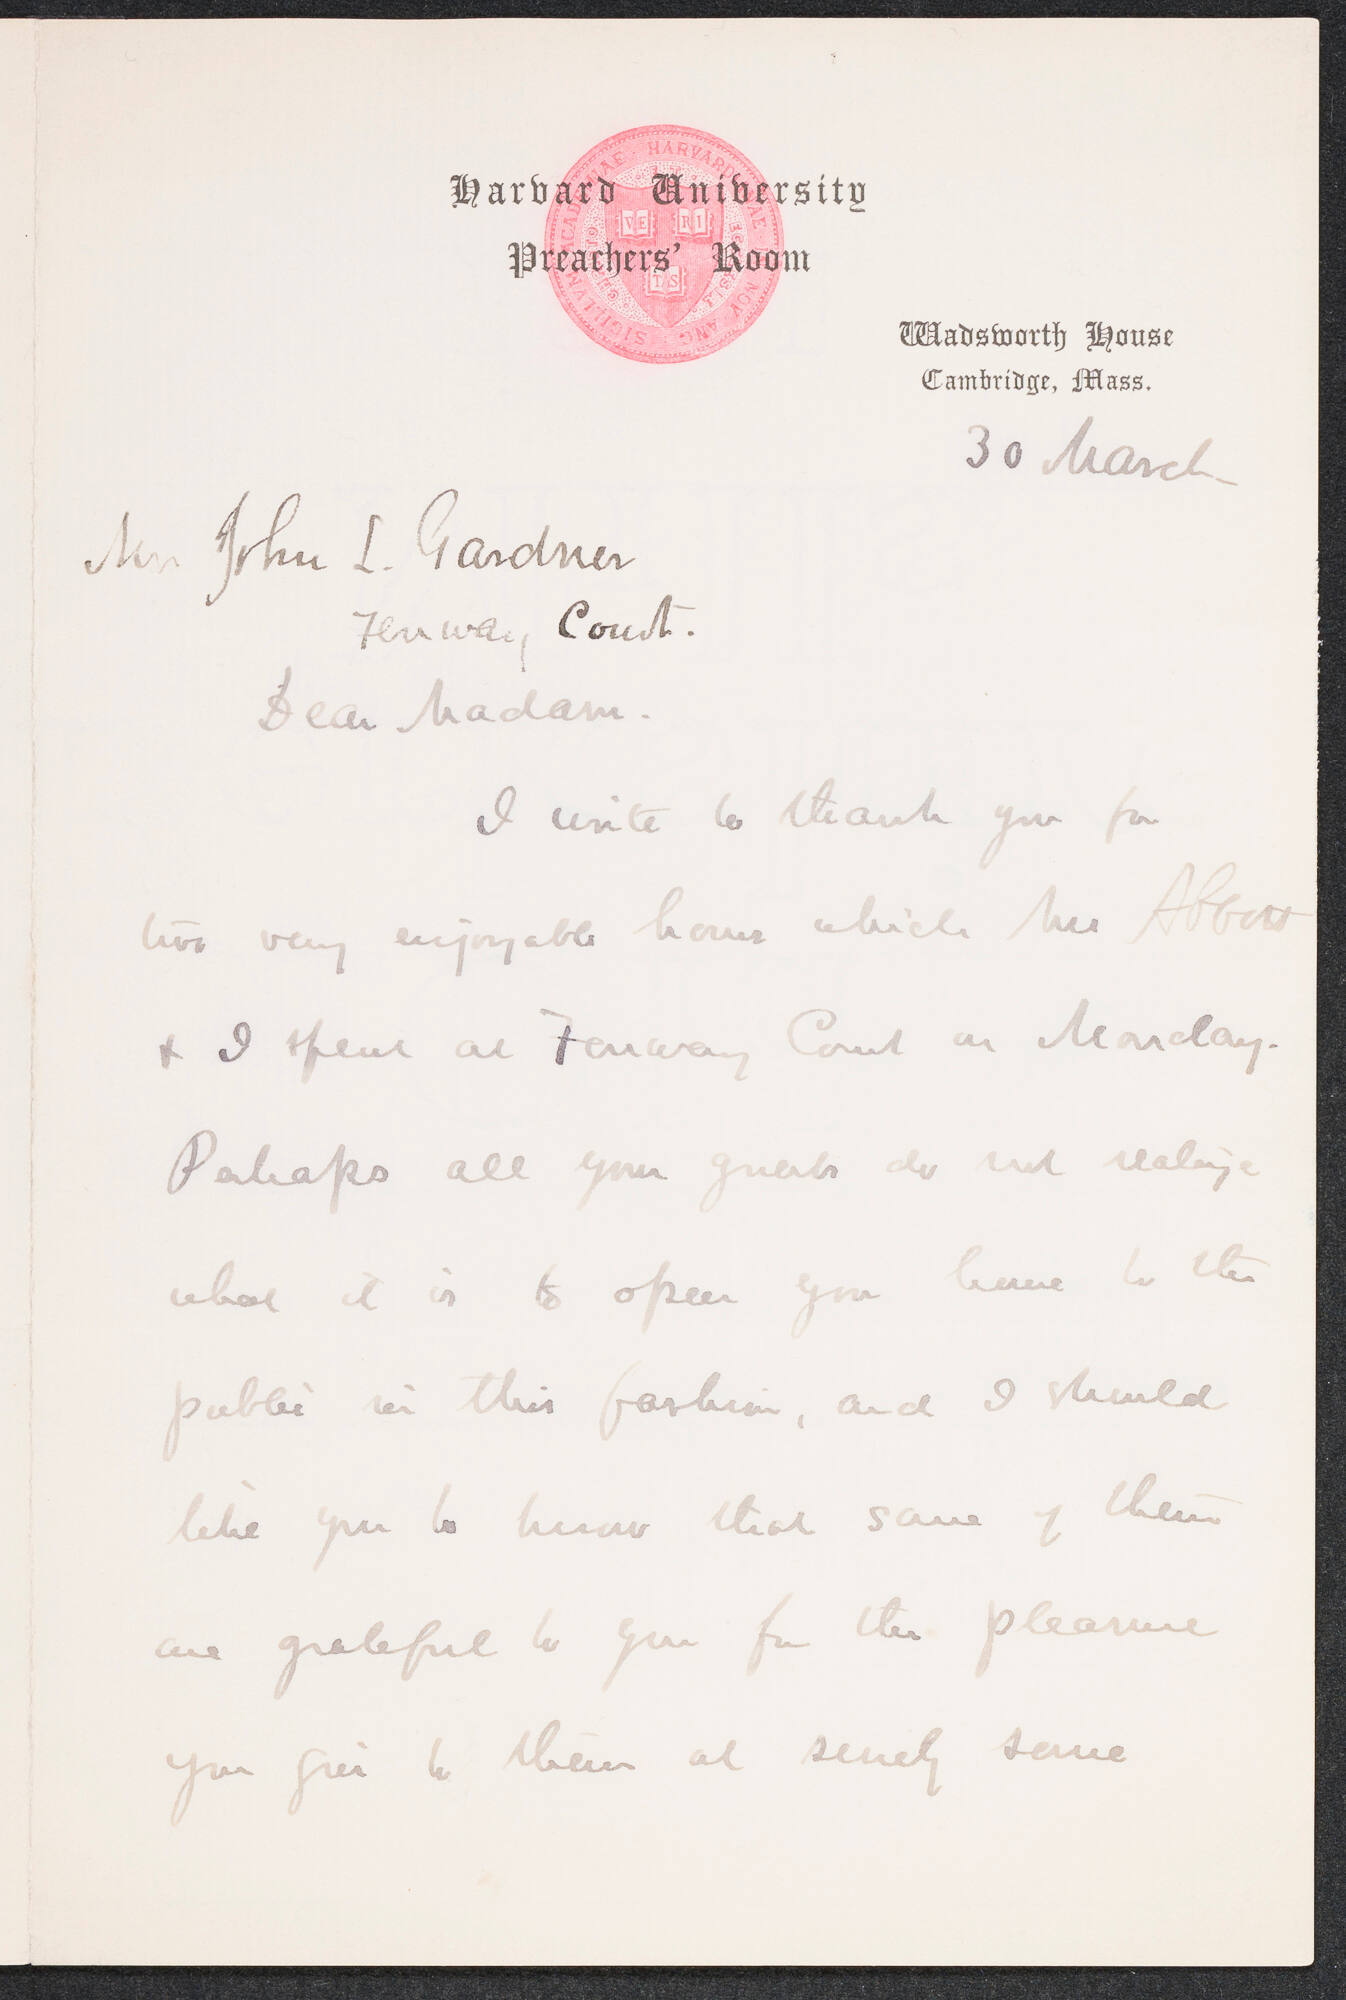 Harvard University
Preachers' Room
SIGILLVM ACADEMIAE HARVARDIANAE NOV ANG
CHRISTO ET ECCLESIAE
VE RI
TAS
Wadsworth House
Cambridge, Mass.
30 March
Mrs John L. Gardner
Fenway Court.
Dear Madam.
I write to thank you for
two very enjoyable hours which Mrs Abbott
& I spent at Fenway Court on Monday.
Perhaps all your guests do not realize
what it is to open your house to the
public in this fashion, and I should
like you to know that some of them
are grateful to you for the pleasure
you give to them at surely some